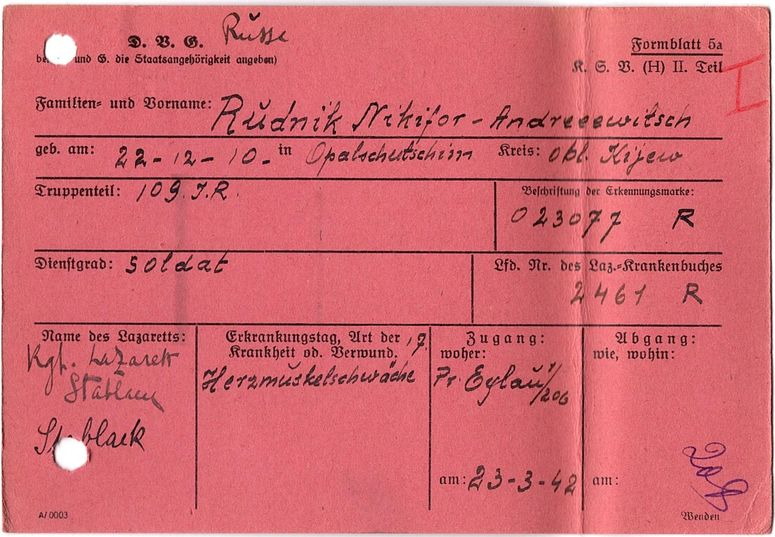 D. V. G. Russe
und G. die Staatsangehörigkeit angeben)
Formblatt 5a
K. S. V. (H) II. Teil
I
Familien- und Vorname: Rudnik Nikifor-Andreeewitsch
geb. am: 22-12-10- in Opalschutschim Kreis: obl. Kijew
Truppenteil: 109 J.R.
Beschriftung der Erkennungsmarke:
023077 R
Dienstgrad: Soldat
Lfd. Nr. des Laz.-Krankenbuches
2461 R
Name des Lazaretts:
Kgf. Lazarett
Stablack
Stablack
Erkrankungstag, Art der
Krankheit od. Verwund. 17.
Herzmuskelschwäche
Zugang:
woher:
Pr. Eylau 1/206
am: 23-3-42
Abgang:
wie, wohin:
am:
A/0003
Wenden